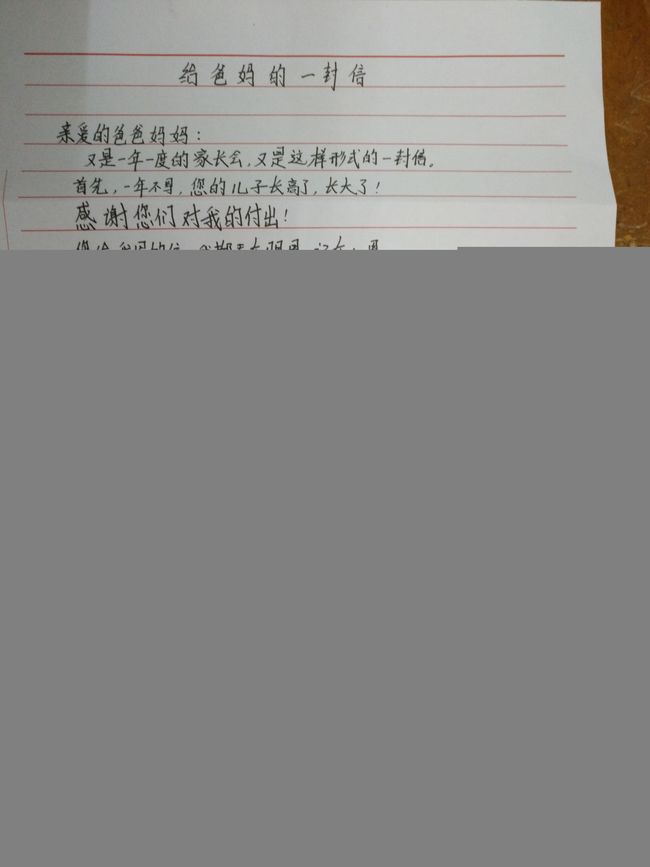 给爸妈的一封信
亲爱的爸爸妈妈：
又是一年一度的家长会，又是这样形式的一封信。
首先，一年不见，您的儿子长高了，长大了！
感谢您们对我的付出！